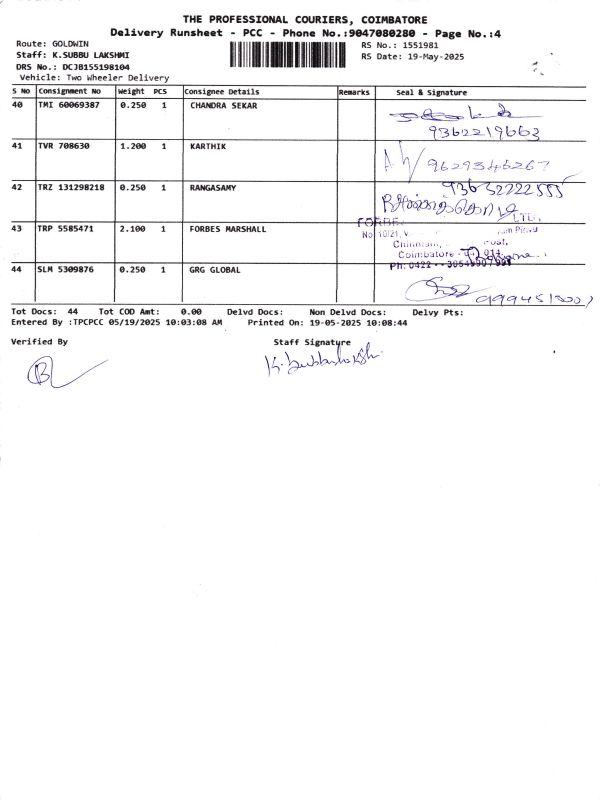 THE PROFESSIONAL COURIERS, COIMBATORE
Delivery Runsheet - PCC - Phone No.:9047080280 - Page No.:4
Route: GOLDWIN RS No.: 1551981
Staff: K.SUBBU LAKSHMI RS Date: 19-May-2025
DRS No.: DCJB155198104
Vehicle: Two Wheeler Delivery
S No Consignment No Weight PCS Consignee Details Remarks Seal & Signature
40 TMI 60069387 0.250 1 CHANDRA SEKAR
9362219663
41 TVR 708630 1.200 1 KARTHIK
9629346267
42 TRZ 131298218 0.250 1 RANGASAMY
43 TRP 5585471 2.100 1 FORBES MARSHALL
LTD.
No. 10/21,
Chinniam, Post,
Coimbatore - 014
Ph: 0422 -
44 SLM 5309876 0.250 1 GRG GLOBAL
Tot Docs: 44 Tot COD Amt: 0.00 Delvd Docs: Non Delvd Docs: Delvy Pts:
Entered By :TPCPCC 05/19/2025 10:03:08 AM Printed On: 19-05-2025 10:08:44
Verified By Staff Signature
K. Subbulakshmi